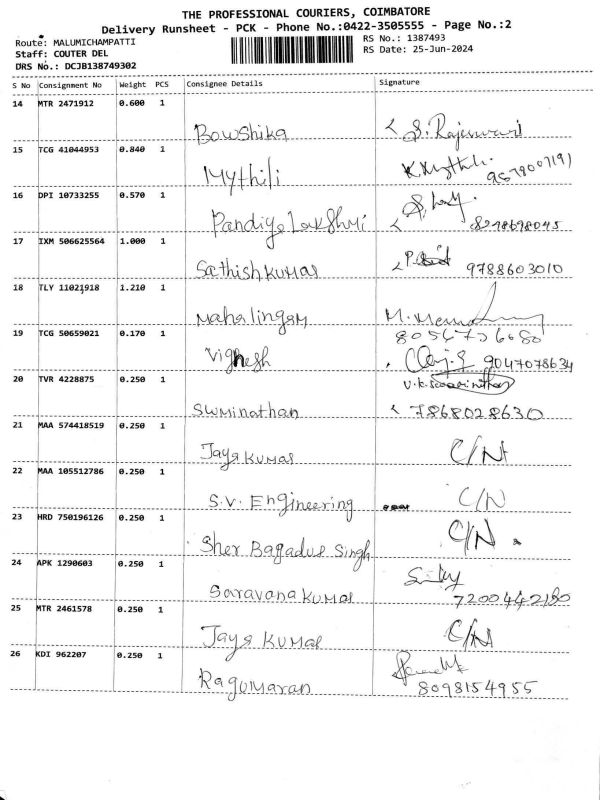 THE PROFESSIONAL COURIERS, COIMBATORE
Delivery Runsheet - PCK - Phone No.:0422-3505555 - Page No.:2
Route: MALUMICHAMPATTI
RS No.: 1387493
Staff: COUTER DEL
RS Date: 25-Jun-2024
DRS No.: DCJB138749302
S No Consignment No Weight PCS Consignee Details Signature
14 MTR 2471912 0.600 1
Bowshika S. Rajeswari
15 TCG 41044953 0.840 1
Mythili K.Mythili
16 DPI 10733255 0.570 1
Pandiya Lakshmi
17 IXM 506625564 1.000 1
Sathish kumar 9788603010
18 TLY 11021918 1.210 1
Mahalingam
19 TCG 50659021 0.170 1
Vighesh 9047078634
20 TVR 4228875 0.250 1
Swminathan 7868028630
21 MAA 574418519 0.250 1
Jaya Kumar C/N
22 MAA 105512786 0.250 1
S.V. Engineering C/N
23 HRD 750196126 0.250 1
Sher Bagadur Singh C/N
24 APK 1290603 0.250 1
Saravana Kumar
25 MTR 2461578 0.250 1
Jaya Kumar C/N
26 KDI 962207 0.250 1
Ragumaran 8098154955